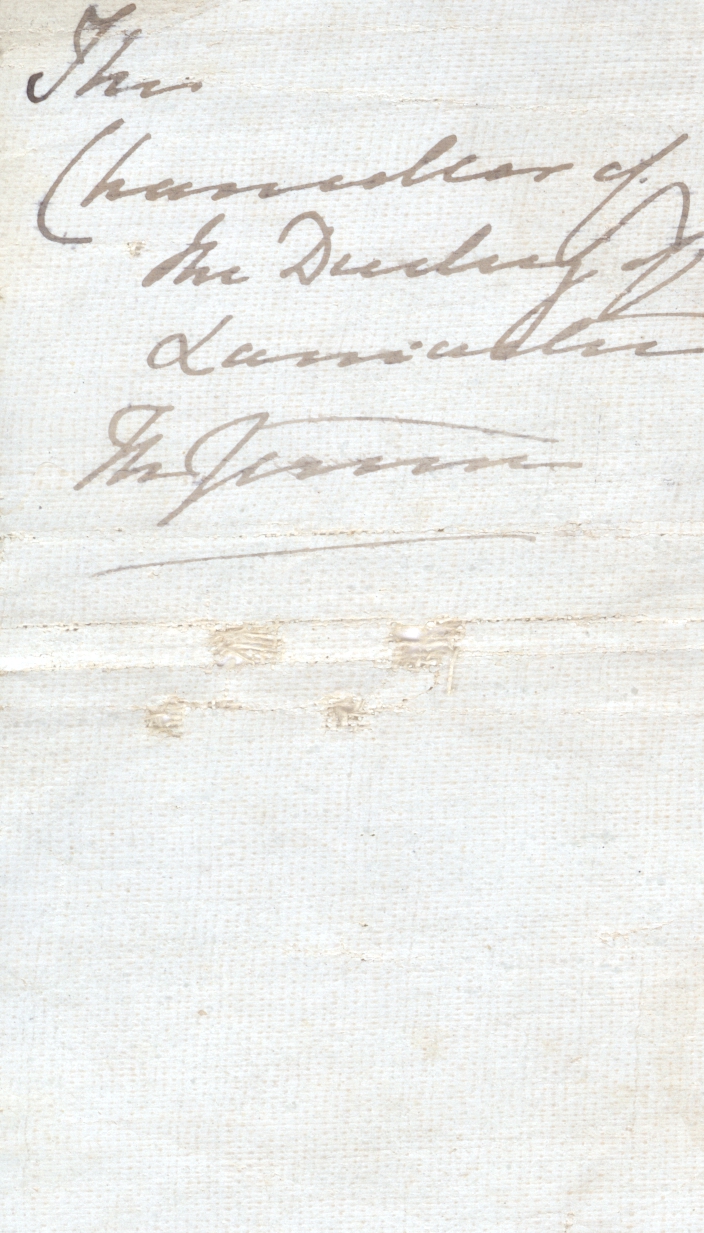 The
Chancellor of
the Duchy of
Lancaster
The